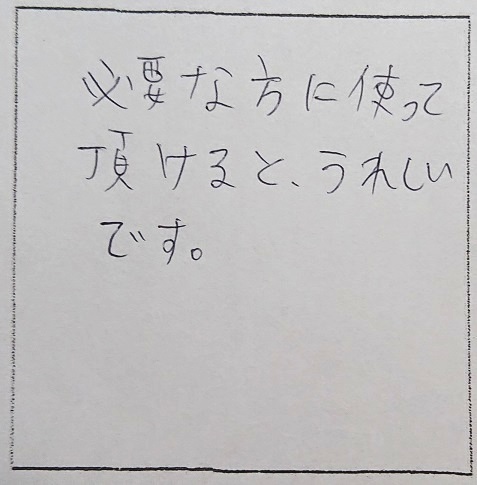 必要な方に使って
頂けると、うれしい
です。